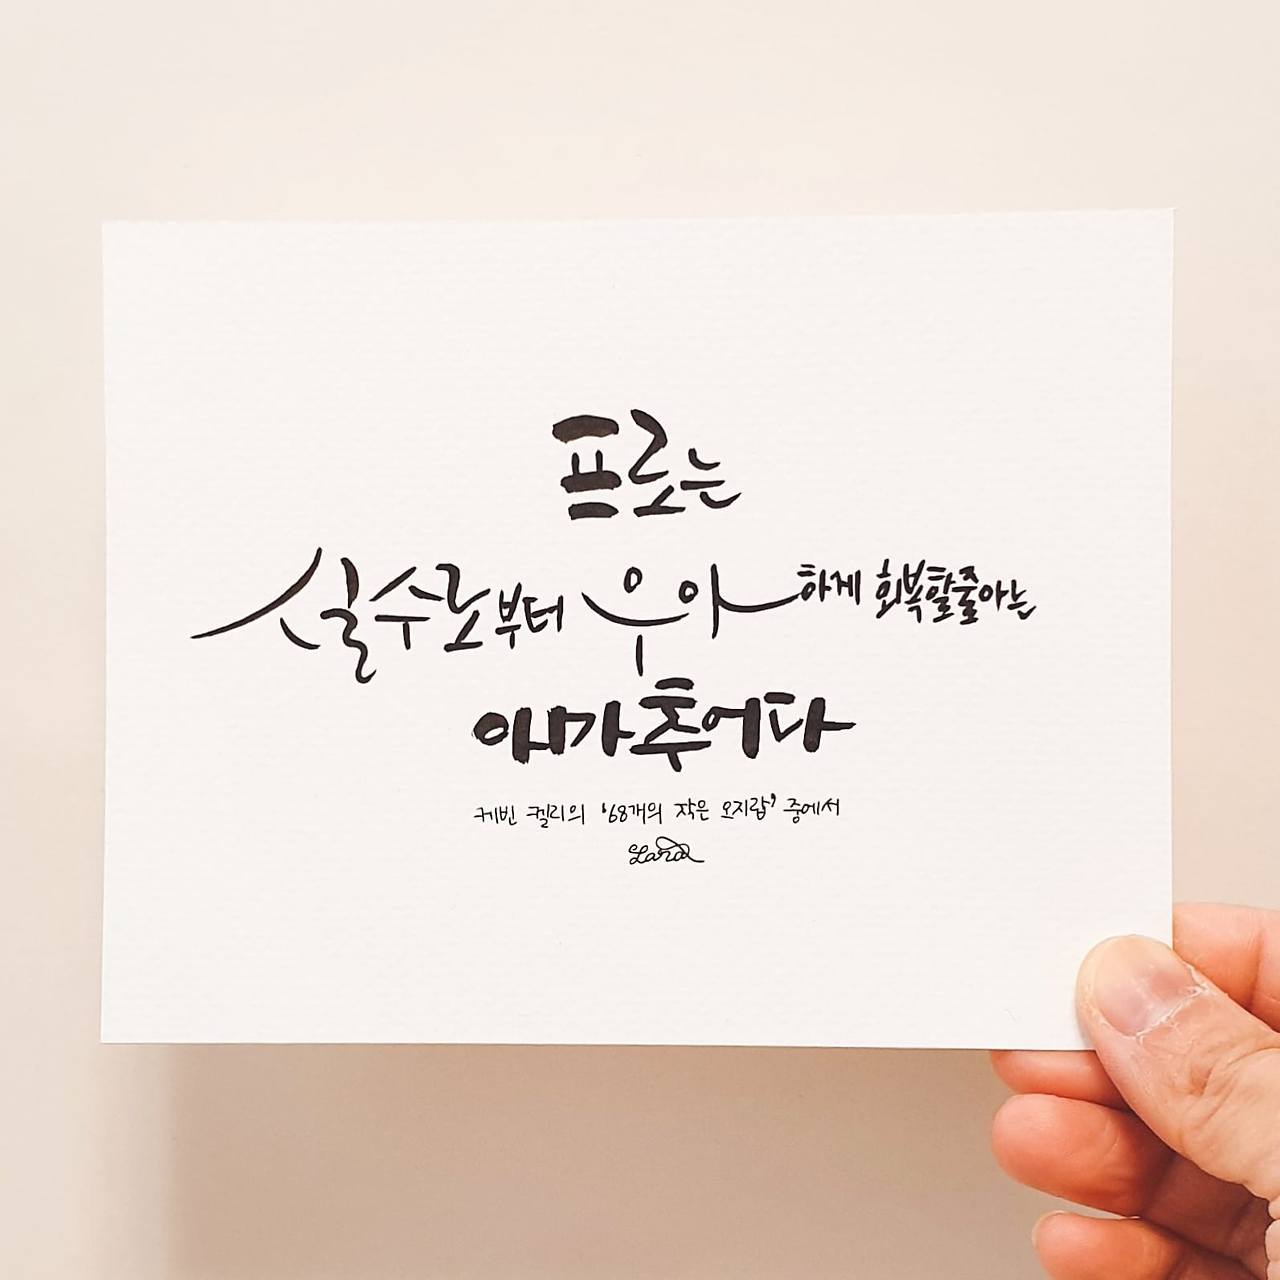 프로는
실수로부터 우아하게 회복할줄아는
아마추어다
케빈 켈리의 '68개의 작은 오지랍' 중에서
Lara